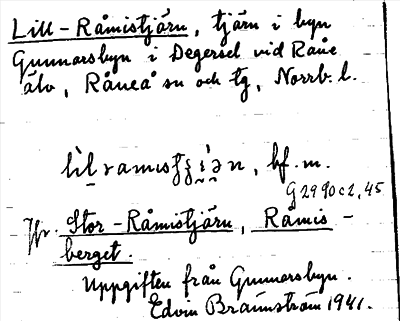 Lill-Råmistjärn, tjärn i byn
Gunnarsbyn i Degersel vid Råne
älv, Råneå sn och tg, Norrb. l.
bf. m.
G2990c2,45
Jfr. Stor-Råmistjärn, Råmis-
berget.
Uppgiften från Gunnarsbyn.
Edvin Brännström 1941.